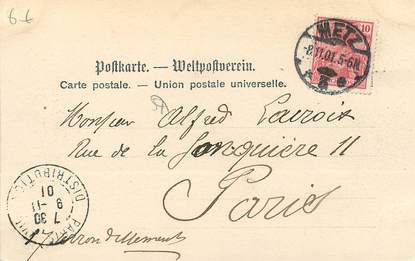 6-6
10
METZ
-8.11.01.5-6N.
Postkarte. — Weltpostverein.
Carte postale. — Union postale universelle.
Monsieur Alfred Lacroix
Rue de la Jonquière 11
Paris
17 Arrondissement
PARIS
7 30
9 -11
01
DISTRIBUTION